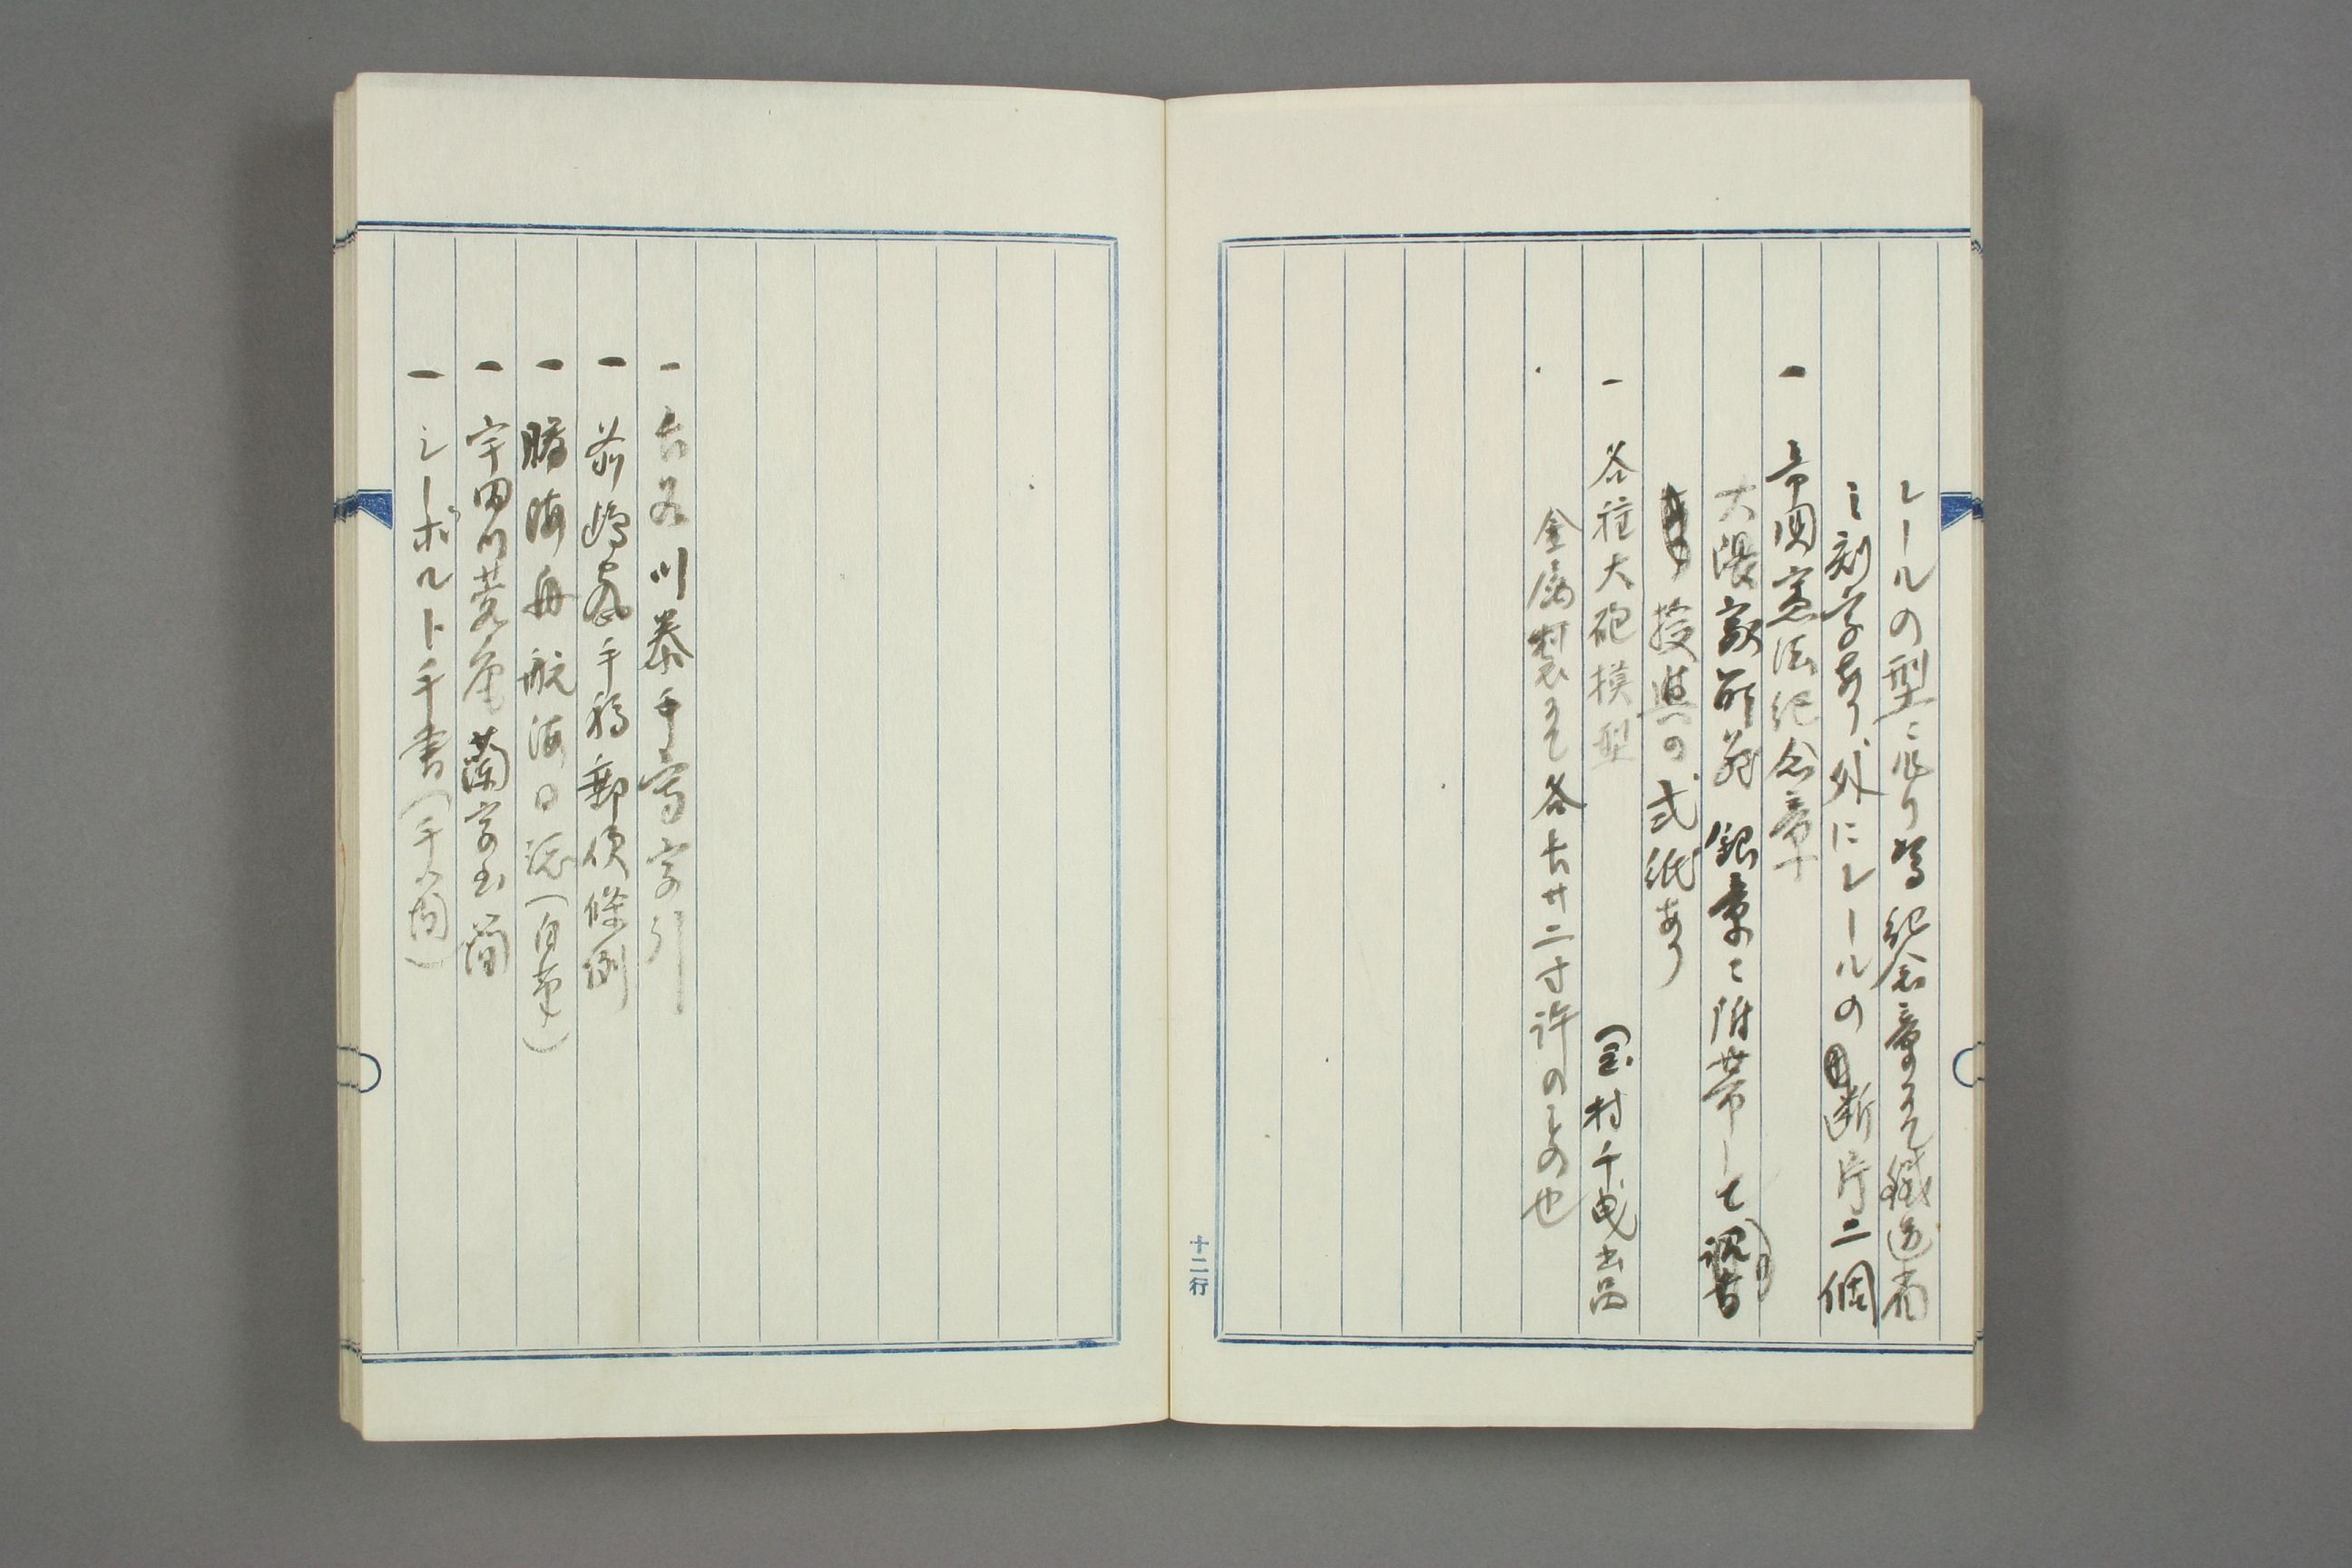 レールの型に作り紀念章にて鐵道省
ニ刻字あり外にレールの断片二個
一 帝国憲法紀念章
大隈家所蔵 銀章に附帯して
授與の式紙あり
一 各種大砲模型 村千曳出品
金属製にて各長廿二寸許のもの也
十二行
一 川泰手寫字引
一 前嶋密手稿郵便條例
一 勝海舟航海日誌(自筆)
一 宇田川蘭字書簡
一 シーボルト手書(手簡)